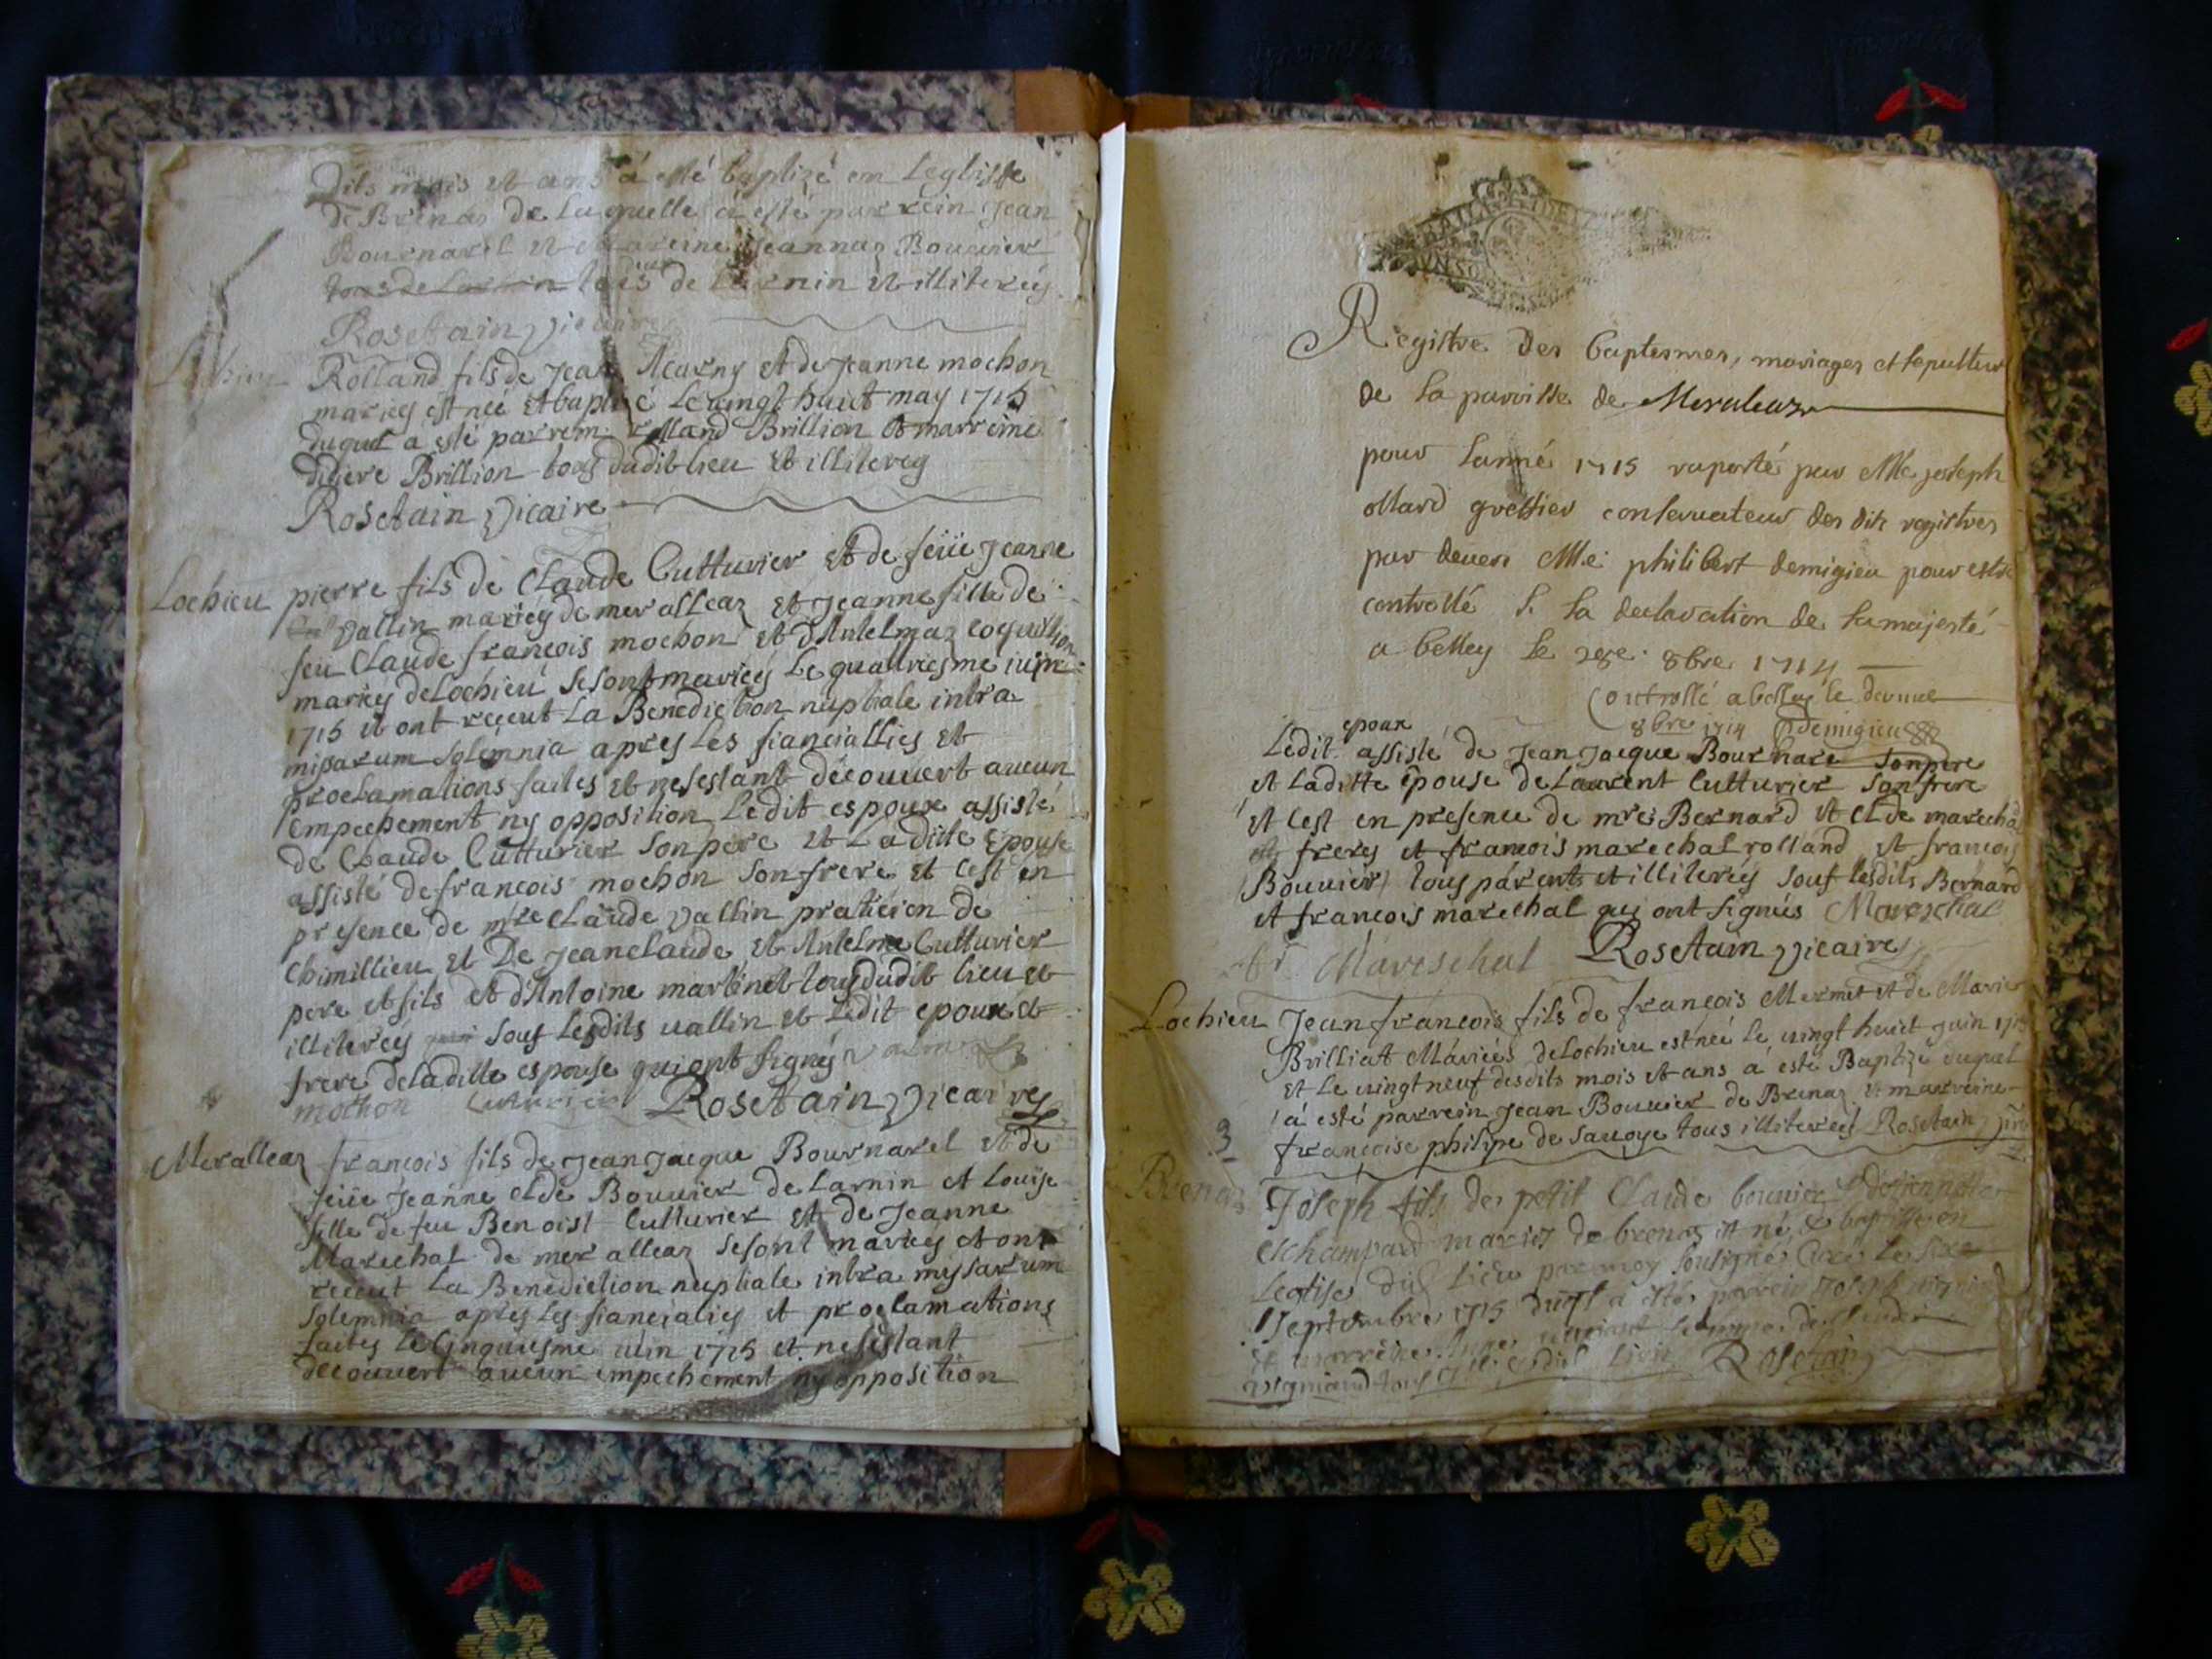 Dits mois et ans á esté baptizé em Leglisse
de Brenas de Laquelle á esté parrein Jean
Bournarel et Mareine Jeannaz Bouvier
tous deux de Larnin et illitereÿ
Rosetain vicaire
Lochieu Rolland fils de Jean Acarny et de Jeanne mochon
marieÿ est neé et baptizé Le uingt huit maÿ 1715
duquel a esté parrein rolland Brillion et marreine
Brillion tous dudit lieu et illitereÿ
Rosetain vicaire
Lochieu pierre fils de Claude Cutturier et de feüe Jeanne
Vallin marieÿ de meralleaz et Jeanne fille de
feu Claude francois mochon et d'Antelmaz coquillion
marieÿ de Lochieu se sont marieÿ Le quattriesme iuin
1715 et ont reçeut La Benediction nuptiale intra
missarum solemnia apreÿ Les fiancialliеs et
proclamations faites et ne sestant découuert aucun
empechement nÿ opposition Ledit espoux assisté
de Claude Cutturier son pere et La ditte Epouse
assisté de francois mochon son frere et cest en
presence de mre Claude Vallin praticien de
Chimillieu et De Jean claude et Antelme Cutturier
pere et fils et d'Antoine martinet tous dudit lieu et
illitereÿ souf lesdits uallin et Ledit epoux et
frere de laditte espouse qui ont signéÿ
mochon Cutturier Rosetain vicaire
Meralleaz francois fils de Jean Jacque Bournarel et de
feüe Jeanne clde Bouuier de Larnin et Louise
fille de feu Benoist Cutturier et de Jeanne
Marechal de meralleaz se sont marieÿ et ont
reçeut La Benediction nuptiale intra missarum
solemnia apreÿ Les fiancialieÿ et proclamations
faites Le cinquiesme iuin 1715 et ne sestant
decouuert aucun empechement nÿ opposition
Registre des baptesmes, mariages et sepultur
de la parroisse de Meraleaz
pour lanné 1715 raporté par Me joseph
ollard greffier conseruateur des dits registres
par deuers Me philibert demigieu pour estre
controllé s. la declaration de sa majesté
a belley le 8bre 1714
Controllé a belley le
8bre 1714 Demigieu
Ledit epoux assisté de Jean Jacque Bournare son pere
et Laditte épouse de Laurent Cutturier son frere
et cest en presence de mres Bernard et clde marechal
frereÿ et francois marechal rolland et francois
Bouuier tous parents et illitereÿ souf lesdits Bernard
et francois marechal qui ont signés Mareschal
Mareschal Rosetain vicaire
Lochieu Jean francois fils de françois Mermet et de Marie
Brilliat Máriéés de Lochieu est neé le uingt huict juin 1715
Et Le uingt neuf desdits mois et ans á esté Baptizé duquel
á esté parrein Jean Bouuier de Brenaz et marreine
françoise philipe de Sauoye tous illitereÿ Rosetain
3
Brenaz Joseph fils de petit Claude bouuier et de jennette
Eschampard mariés de brenas est né, & baptisé en
Leglise dud. Lieu par moy soubsigné Curé Le
septembre 1715 duql a esté parrein Joseph
et marreine femme de
vigniand tous dudit Lieu Rosetain